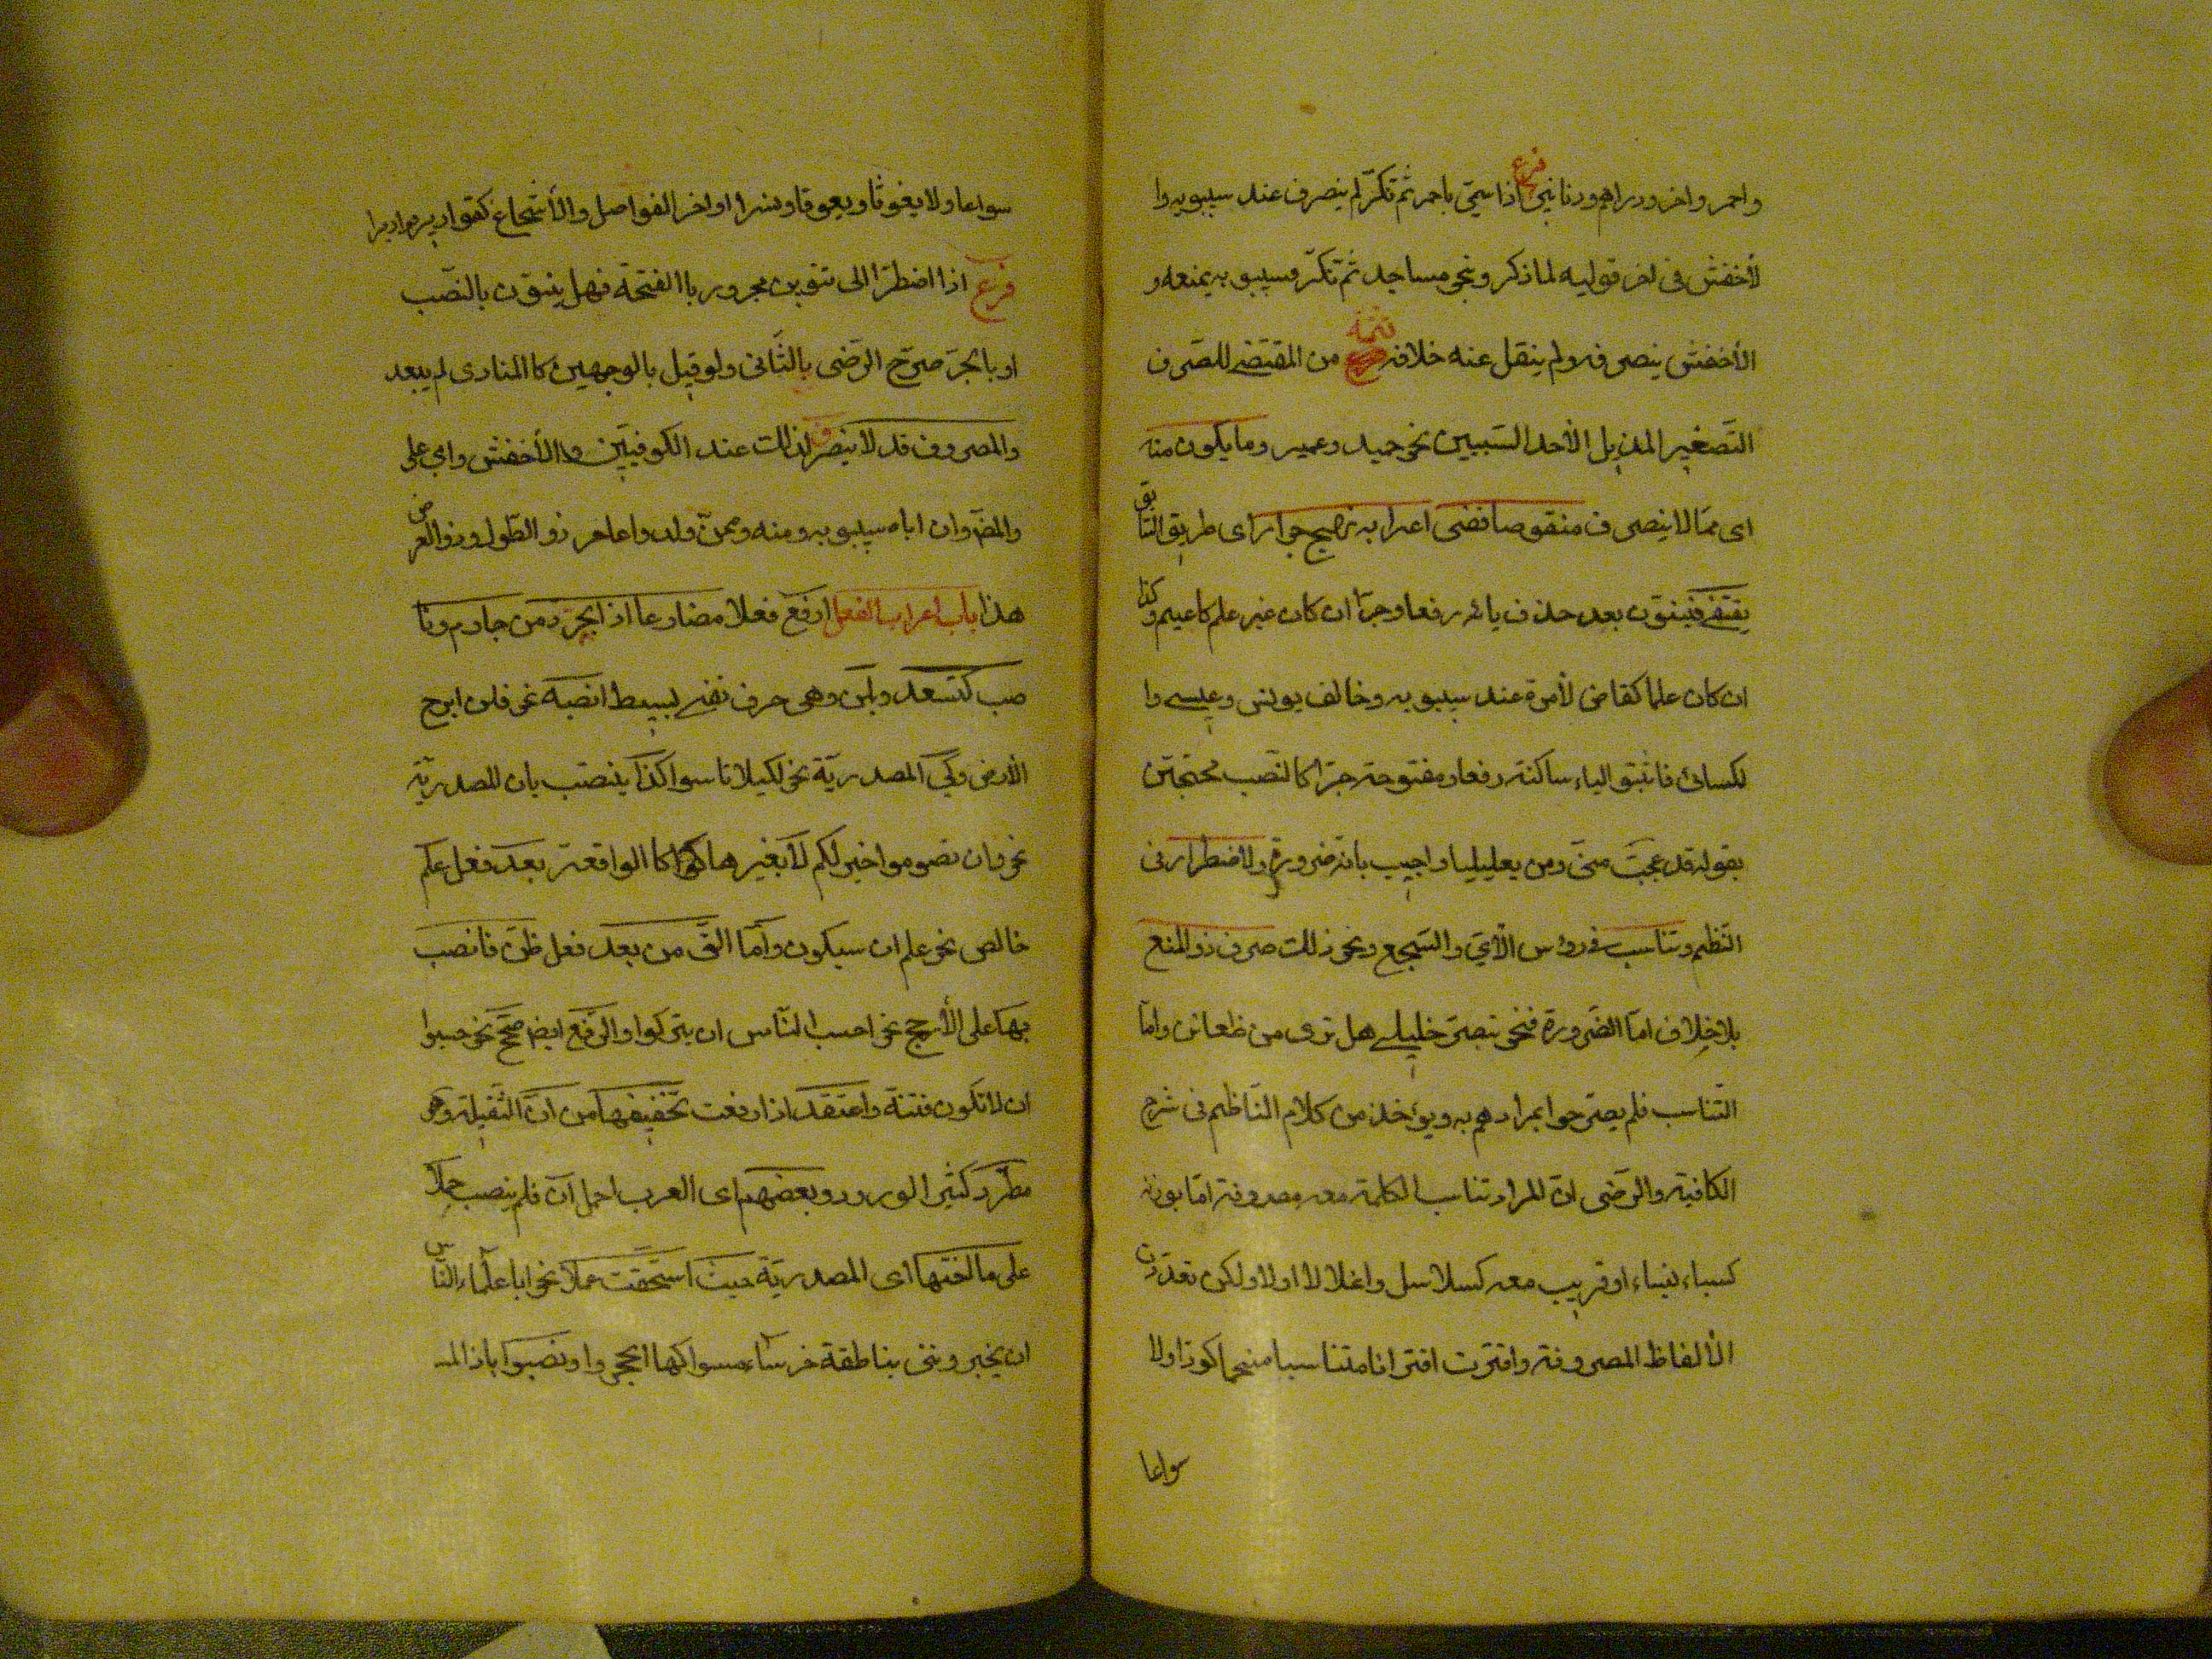 واحمر واخر ودراهم ودنانير فرع اذا سمّى باحمر ثم نكّر لم ينصرف عند سيبويه وا
لأخفش فى اخر قوليه لما ذكر ونحو مساجد ثم نكّر فسيبويه يمنعه و
الأخفش يصرفه ولم ينقل عنه خلافه تتمة من المقتضى للصّرف
التّصغير المزيل لأحد السّببين نحو حميد وعمير وما يكون منه
اى ممّا لا ينصرف منقوصا ففى اعرابه نهج جوار اى طريق السّابق
يقتفى فينوّن بعد حذف يائه رفعا وجرّا ان كان غير علم كاعيم وكذا
ان كان علما كقاض لأمرة عند سيبويه وخالف يونس وعيسى وا
لكسائى فاثبتو الياء ساكنة رفعا ومفتوحة جرّا كالنّصب محتجّين
بقوله قد عجبت منّى ومن يعليليا واجيب بانّه ضرورة ولاضطرار فى
النّظم وتناسب فى رؤس الأي والسّجع ونحو ذلك صرف ذو المنع
بلا خلاف امّا الضّرورة فنحو تبصّر خليلى هل ترى من ظعائن وامّا
التّناسب فلم يصرّحوا بمرادهم به ويؤخذ من كلام النّاظم فى شرح
الكافية والرّضى انّ المراد تناسب الكلمة معه مصروفة امّا بوزنه
كسباء بنباء او قريب معه كسلاسل واغلالا اولا ولكن تعدّدت
الألفاظ المصروفة واقترت اقترانا متناسبا منسجما كودّا ولا
سواعا
سواعا ولا يغوثا ويعوقا ونسرا او اخر الفواصل والأسجاع كقواريرا قواريرا
فرع اذا اضطرّا الى تنوين مجرور باالفتحة فهل ينوّن بالنّصب
او بالجرّ صرّح الرّضى بالثّانى ولو قيل بالوجهين كاالمنادى لم يبعد
والمصروف قد لا ينصرف لذلك عند الكوفيّين والأخفش وابى على
والمص وان اباه سيبويه ومنه وممن ولدوا عامر ذو الطّول وذو العرض
هذا باب اعراب الفعل ارفع فعلا مضارعا اذا يجرّد من جازم ونا
صب كتسعد وبلن وهى حرف نفى بسيط انصبه نحو فلن ابرح
الأرض وكى المصدريّة نحو لكيلا تاسوا كذا ينصب بان المصدريّة
نحو وان تصوموا خير لكم لا بغيرها كاالواقعة بعد فعل علم
خالص نحو علم ان سيكون وامّا الّتى من بعد فعل ظنّ فانصب
بها على الأرجح نحو احسب النّاس ان يتركوا والرّفع ايض صحّح نحو حسبوا
ان لا تكون فتنة واعتقد اذا رفعت تخفيفها من انّ الثّقيلة وهو
مطّرد كثير الورود وبعضهم اى العرب اهمل ان فلم ينصب حملا
على ما اختها اى المصدريّة حيث استحقّت عملا نحو ابا علماء النّاس
ان يخبروننى بناطقة خرساء مسواكها الحجر واو نصبوا باذا المس